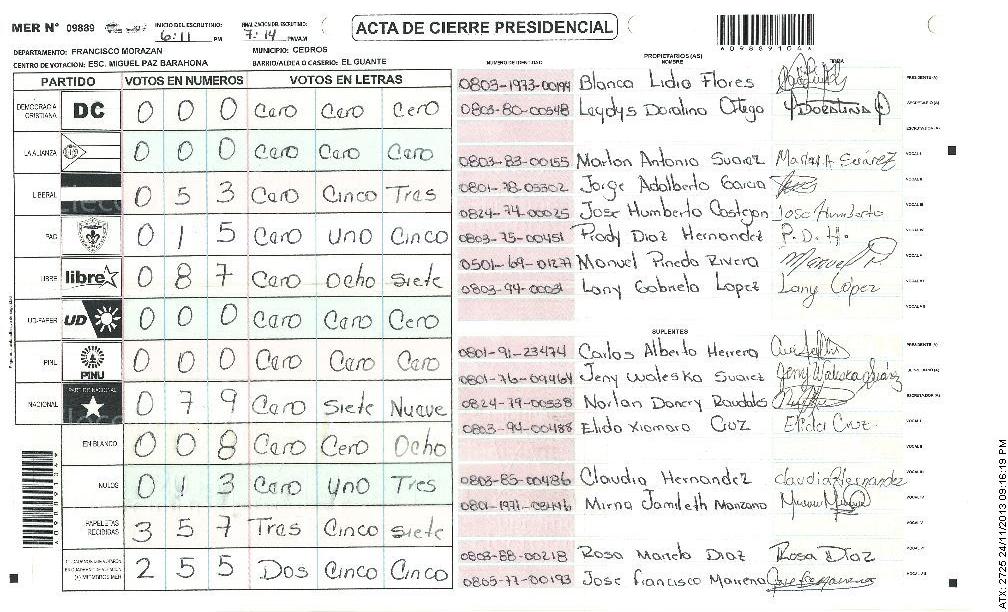 MER Nº 09889 INICIO DEL ESCRUTINIO: 6:11 PM FINALIZACION DEL ESCRUTINIO: 7:14 PM/A.M
ACTA DE CIERRE PRESIDENCIAL
A09889104A
DEPARTAMENTO: FRANCISCO MORAZAN MUNICIPIO: CEDROS
CENTRO DE VOTACION: ESC. MIGUEL PAZ BARAHONA BARRIO/ALDEA O CASERIO: EL GUANTE
PARTIDO VOTOS EN NUMEROS VOTOS EN LETRAS
DEMOCRACIA CRISTIANA DC 0 0 0 Cero Cero Cero
LA ALIANZA 0 0 0 Cero Cero Cero
LIBERAL 0 5 3 Cero Cinco Tres
PAC 0 1 5 Cero Uno Cinco
LIBRE libre 0 8 7 Cero Ocho Siete
UD-FAPER UD 0 0 0 Cero Cero Cero
PINU PINU 0 0 0 Cero Cero Cero
NACIONAL PARTIDO NACIONAL 0 7 9 Cero Siete Nueve
EN BLANCO 0 0 8 Cero Cero Ocho
NULOS 0 1 3 Cero Uno Tres
PAPELETAS RECIBIDAS 3 5 7 Tres Cinco Siete
2 5 5 Dos Cinco Cinco
(+) MIEMBROS MER
NUMERO DE IDENTIDAD PROPIETARIOS (AS) NOMBRE FIRMA
0803-1973-00199 Blanca Lidia Flores PRESIDENTE (A)
0803-80-00548 Leydys Doralina Ortega DORALINA O
ESCRUTADOR (A)
0803-83-00155 Marlon Antonio Suarez Marlon A Suárez VOCAL I
0801-78-05302 Jorge Adalberto Garcia VOCAL II
0824-74-00025 Jose Humberto Castejon Jose Humberto VOCAL III
0803-75-00451 Fredy Diaz Hernandez F. D. H. VOCAL IV
0501-69-01277 Manuel Pineda Rivera Manuel P VOCAL V
Lany Gabriela Lopez Lany López VOCAL VI
SUPLENTES
0801-91-23474 Carlos Alberto Herrera PRESIDENTE (A)
0801-76-09464 Jeny Waleska Suarez Jeny Waleska Suárez
0824-79-00538 ESCRUTADOR (A)
0803-94-00488 Elida Xiomara Cruz Elida Cruz VOCAL I
VOCAL II
0803-85-00486 Claudia Hernandez Claudia Hernandez VOCAL III
Mirna Jamileth Manzano VOCAL IV
VOCAL V
0803-88-00218 Rosa Maria Diaz Rosa Díaz
0805-77-00193 Jose Francisco VOCAL VII
ATX: 2725 24/11/2013 09:16:19 PM